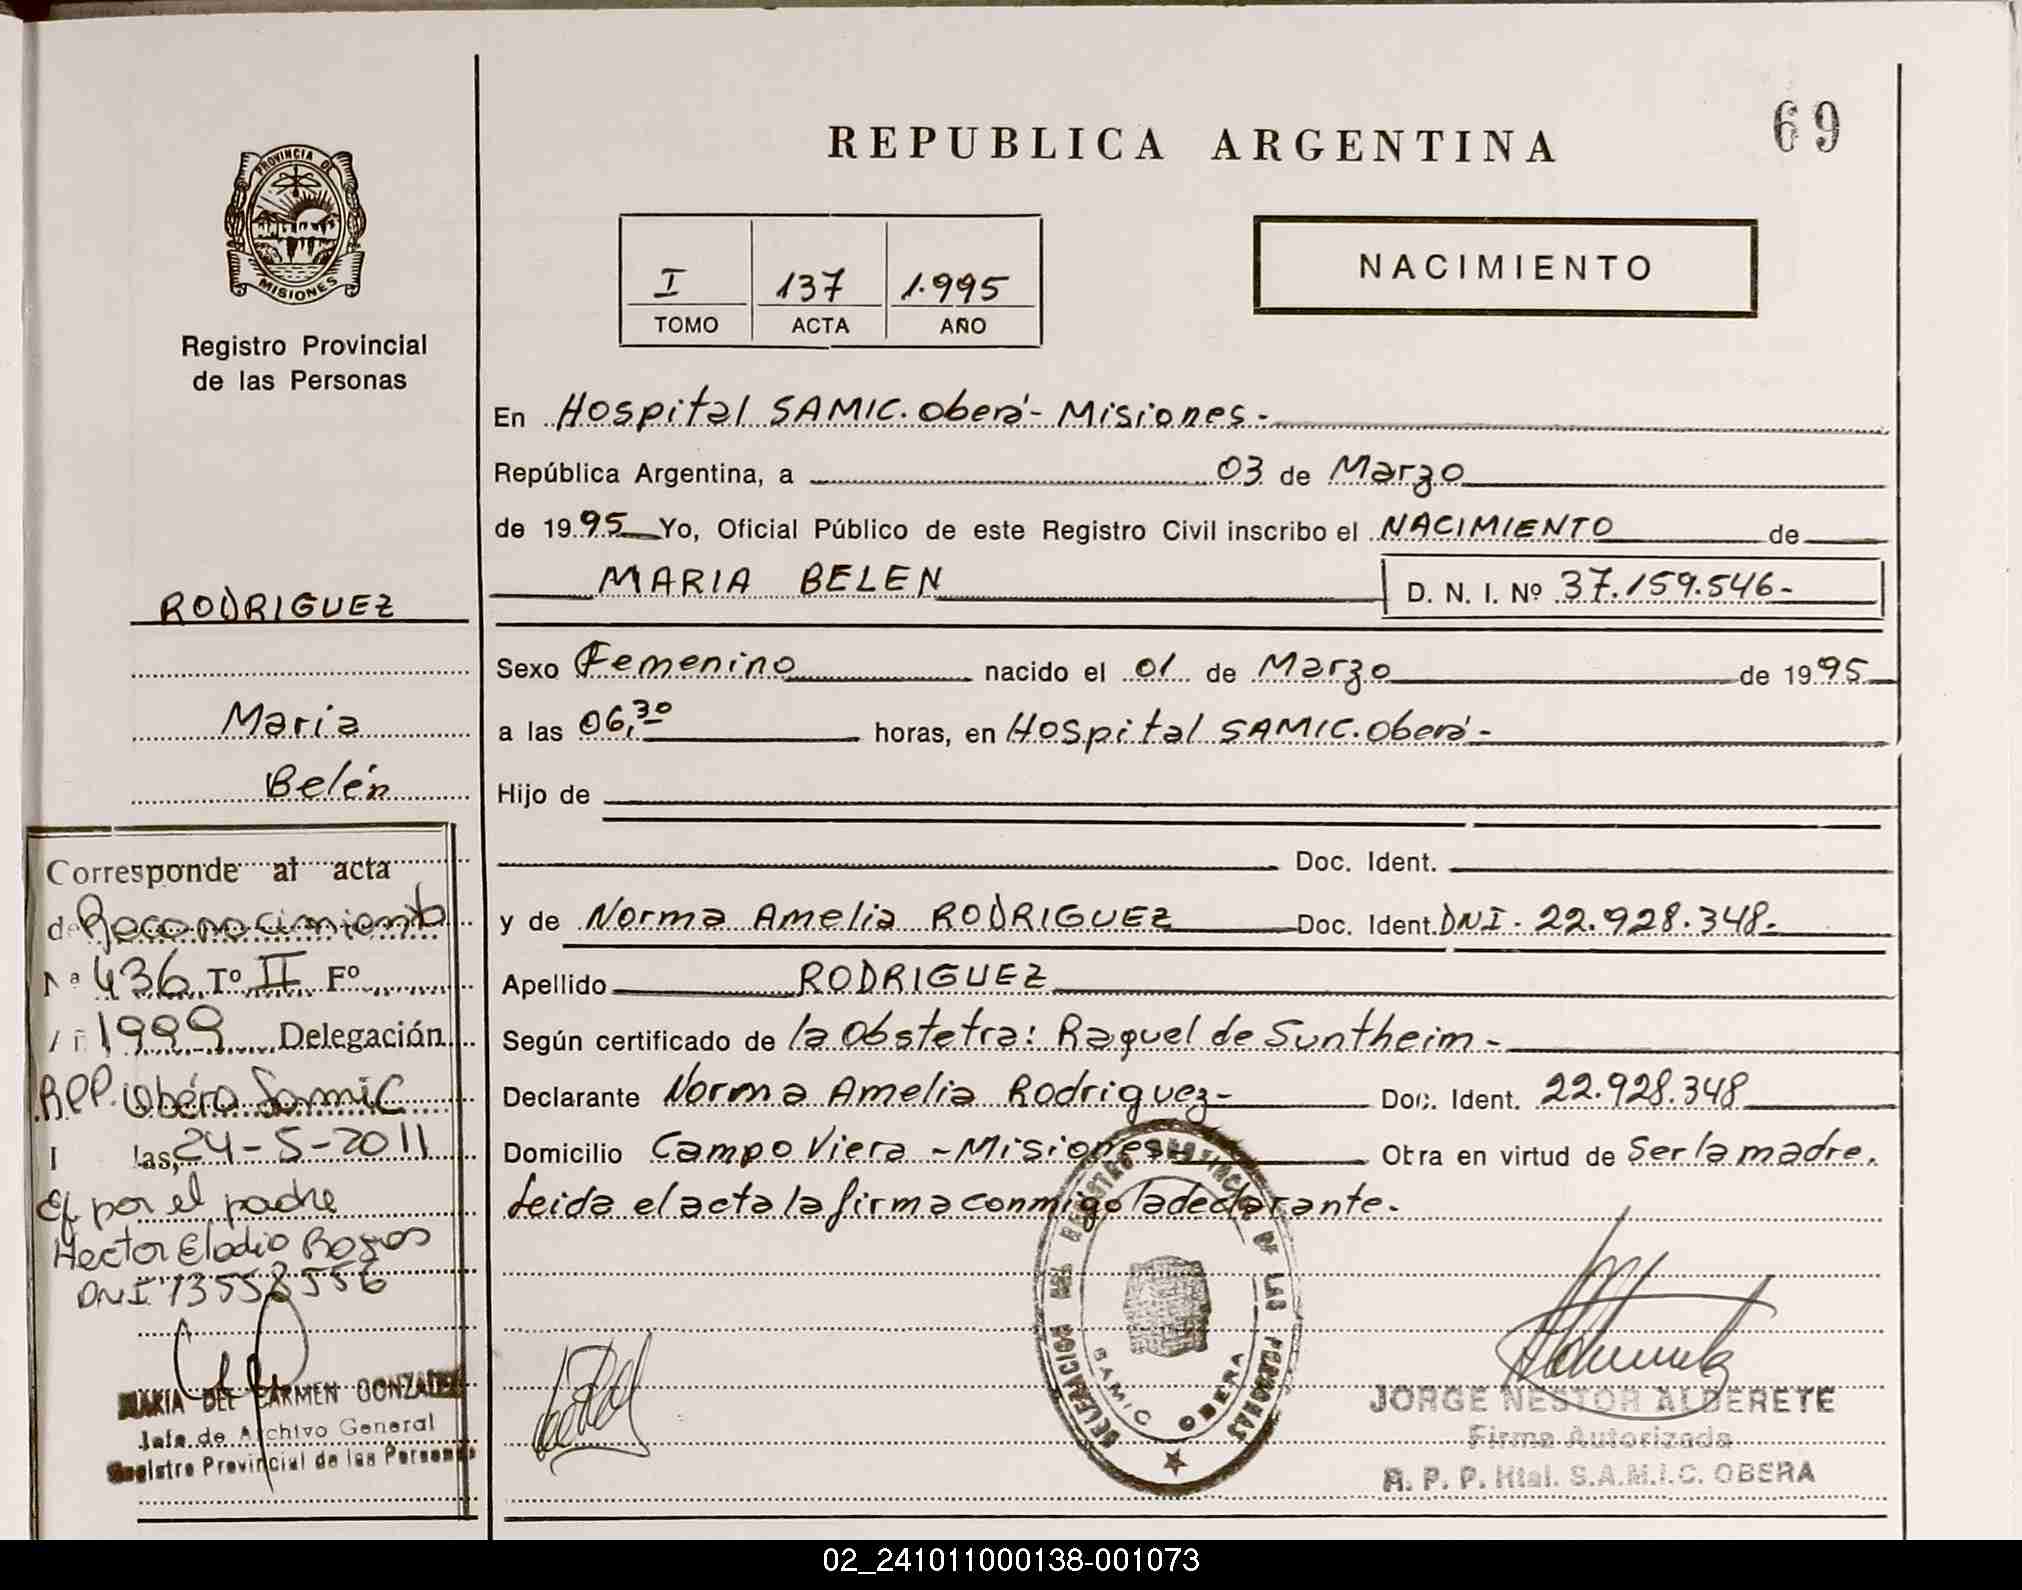 69
REPUBLICA ARGENTINA
PROVINCIA DE
MISIONES
Registro Provincial
de las Personas
I 137 1.995
TOMO ACTA AÑO
NACIMIENTO
En Hospital SAMIC. Oberá - Misiones -
República Argentina, a 03 de Marzo
de 1995 Yo, Oficial Público de este Registro Civil inscribo el NACIMIENTO de
MARIA BELEN D. N. I. Nº 37.159.546-
Sexo Femenino nacido el 01 de Marzo de 1995
a las 06,30 horas, en Hospital SAMIC. Oberá -
Hijo de
Doc. Ident.
y de Norma Amelia RODRIGUEZ Doc. Ident. DNI - 22.928.348.
Apellido RODRIGUEZ
Según certificado de la Obstetra: Raquel de Suntheim -
Declarante Norma Amelia Rodriguez - Doc. Ident. 22.928.348
Domicilio Campo Viera - Misiones - Obra en virtud de Ser la madre.
Leida el acta la firma conmigo la declarante.
RODRIGUEZ
Maria
Belén
Corresponde al acta
de Reconocimiento
Nº 436 Tº II Fº
1999 Delegación
RPP. Oberá Samic
las, 24-5-2011
por el padre
Hector Eladio
DNI 13558556
MARIA DEL CARMEN GONZALEZ
Jefe de Archivo General
Registro Provincial de las Personas
DELEGACION DEL REGISTRO PROVINCIAL DE LAS PERSONAS
SAMIC OBERA
JORGE NESTOR ALDERETE
Firma Autorizada
R. P. P. Htal. S.A.M.I.C. OBERA
02_241011000138-001073